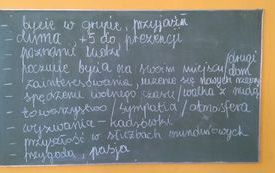 - bycie w grupie, przyjaźń
- duma, +5 do prezencji
- poznanie ludzi
- poczucie bycia na swoim miejscu / drugi dom
- zainteresowania, uczenie się nowych rzeczy
- spędzenie wolnego czasu / walka z nudą
- towarzystwo / sympatia / atmosfera
- wyzwania - kadrówki
- przyszłość w służbach mundurowych
- przygoda, pasja